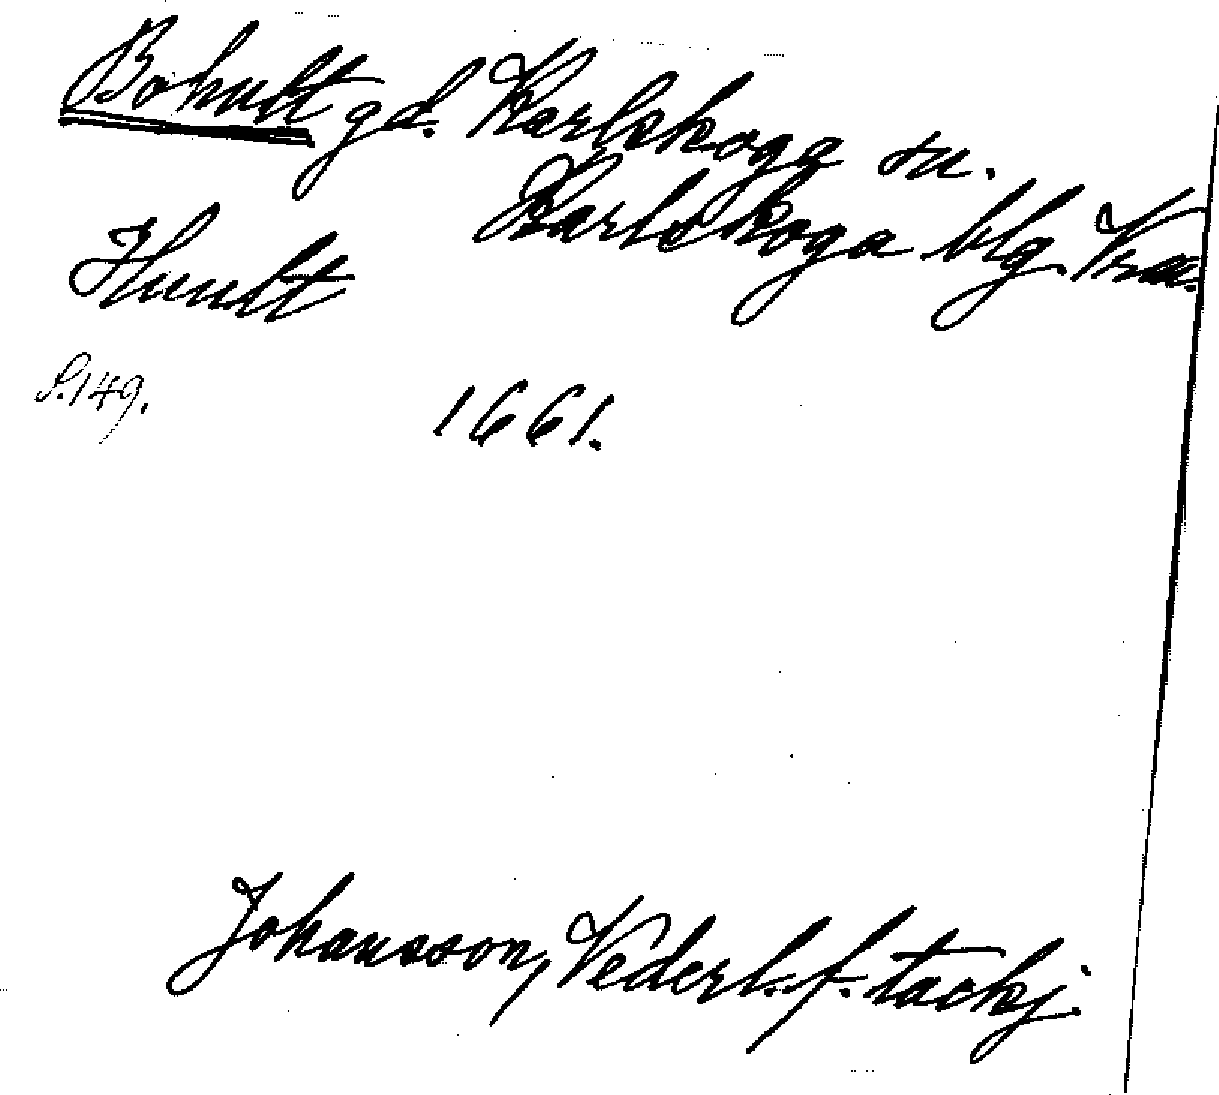 Bohult gd. Karlskoga sn.
Karlskoga blg. Vrm.
Hunlt
S. 149.
1661.
Johansson, Vederl. f. tackj.